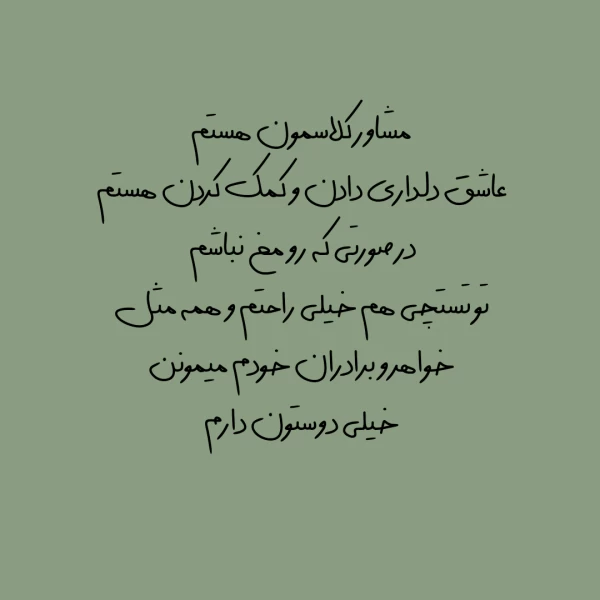 مشاور کلاسمون هستم
عاشق دلداری دادن و کمک کردن هستم
در صورتی که رو مخ نباشم
تو تستچی هم خیلی راحتم و همه مثل
خواهر و برادران خودم میمونن
خیلی دوستون دارم